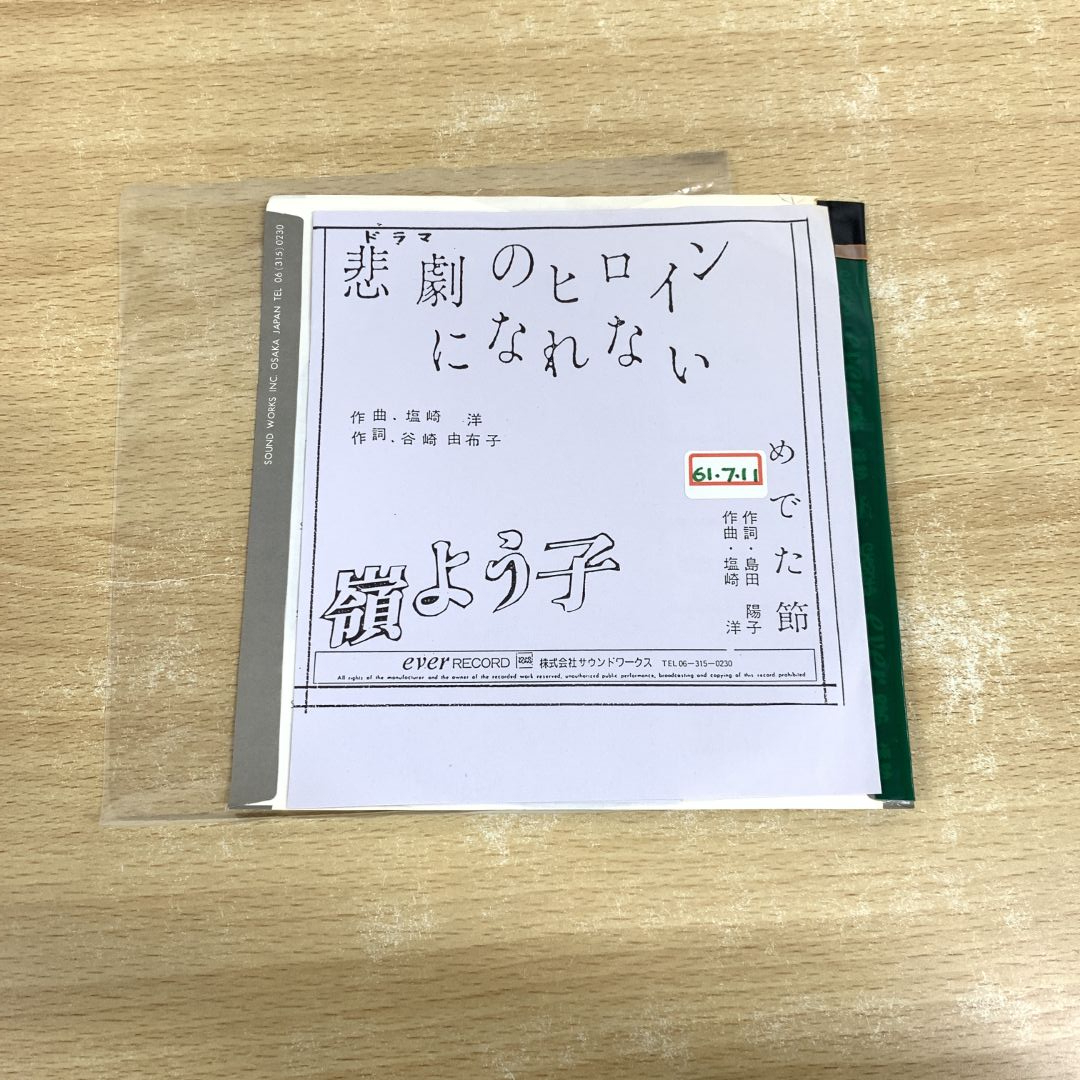 SOUND WORKS INC. OSAKA JAPAN TEL 06(315)0230
ドラマ
悲劇のヒロイン
になれない
作曲、塩崎 洋
作詞、谷崎 由布子
61・7・11
めでた節
作詞・島田 陽子
作曲・塩崎 洋
嶺よう子
ever RECORD 株式会社サウンドワークス TEL06-315-0230
All rights of the manufacturer and the owner of the recorded work reserved, unauthorized public performance, broadcasting and copying of this record prohibited